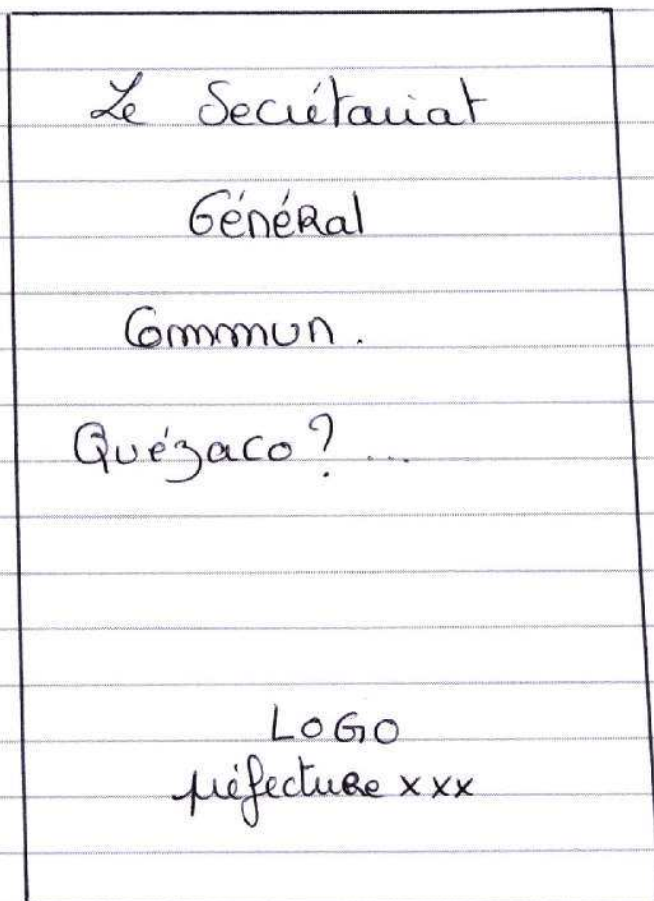 Le Secrétariat
Général
Commun.
Quézaco? ...
LOGO
préfecture xxx